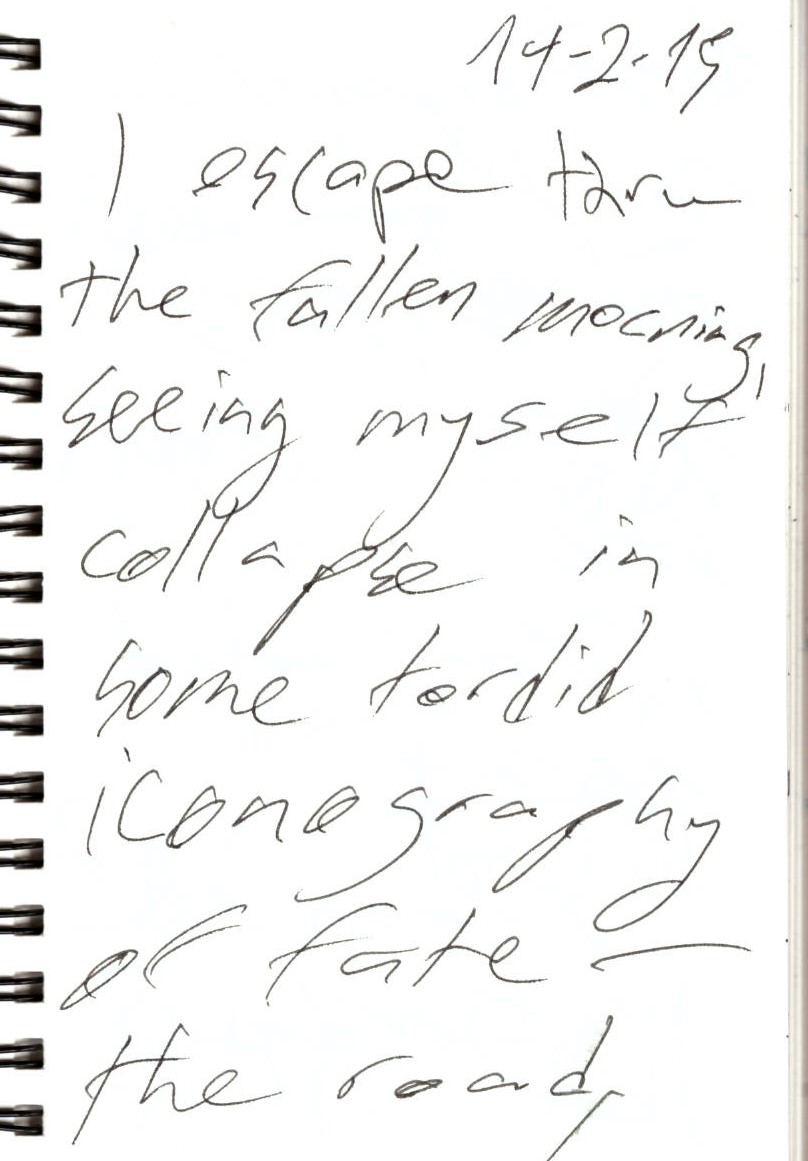 14-2-15
I escape thru
the fallen morning,
seeing myself
collapse in
some tordid
iconography
of fate —
the road,